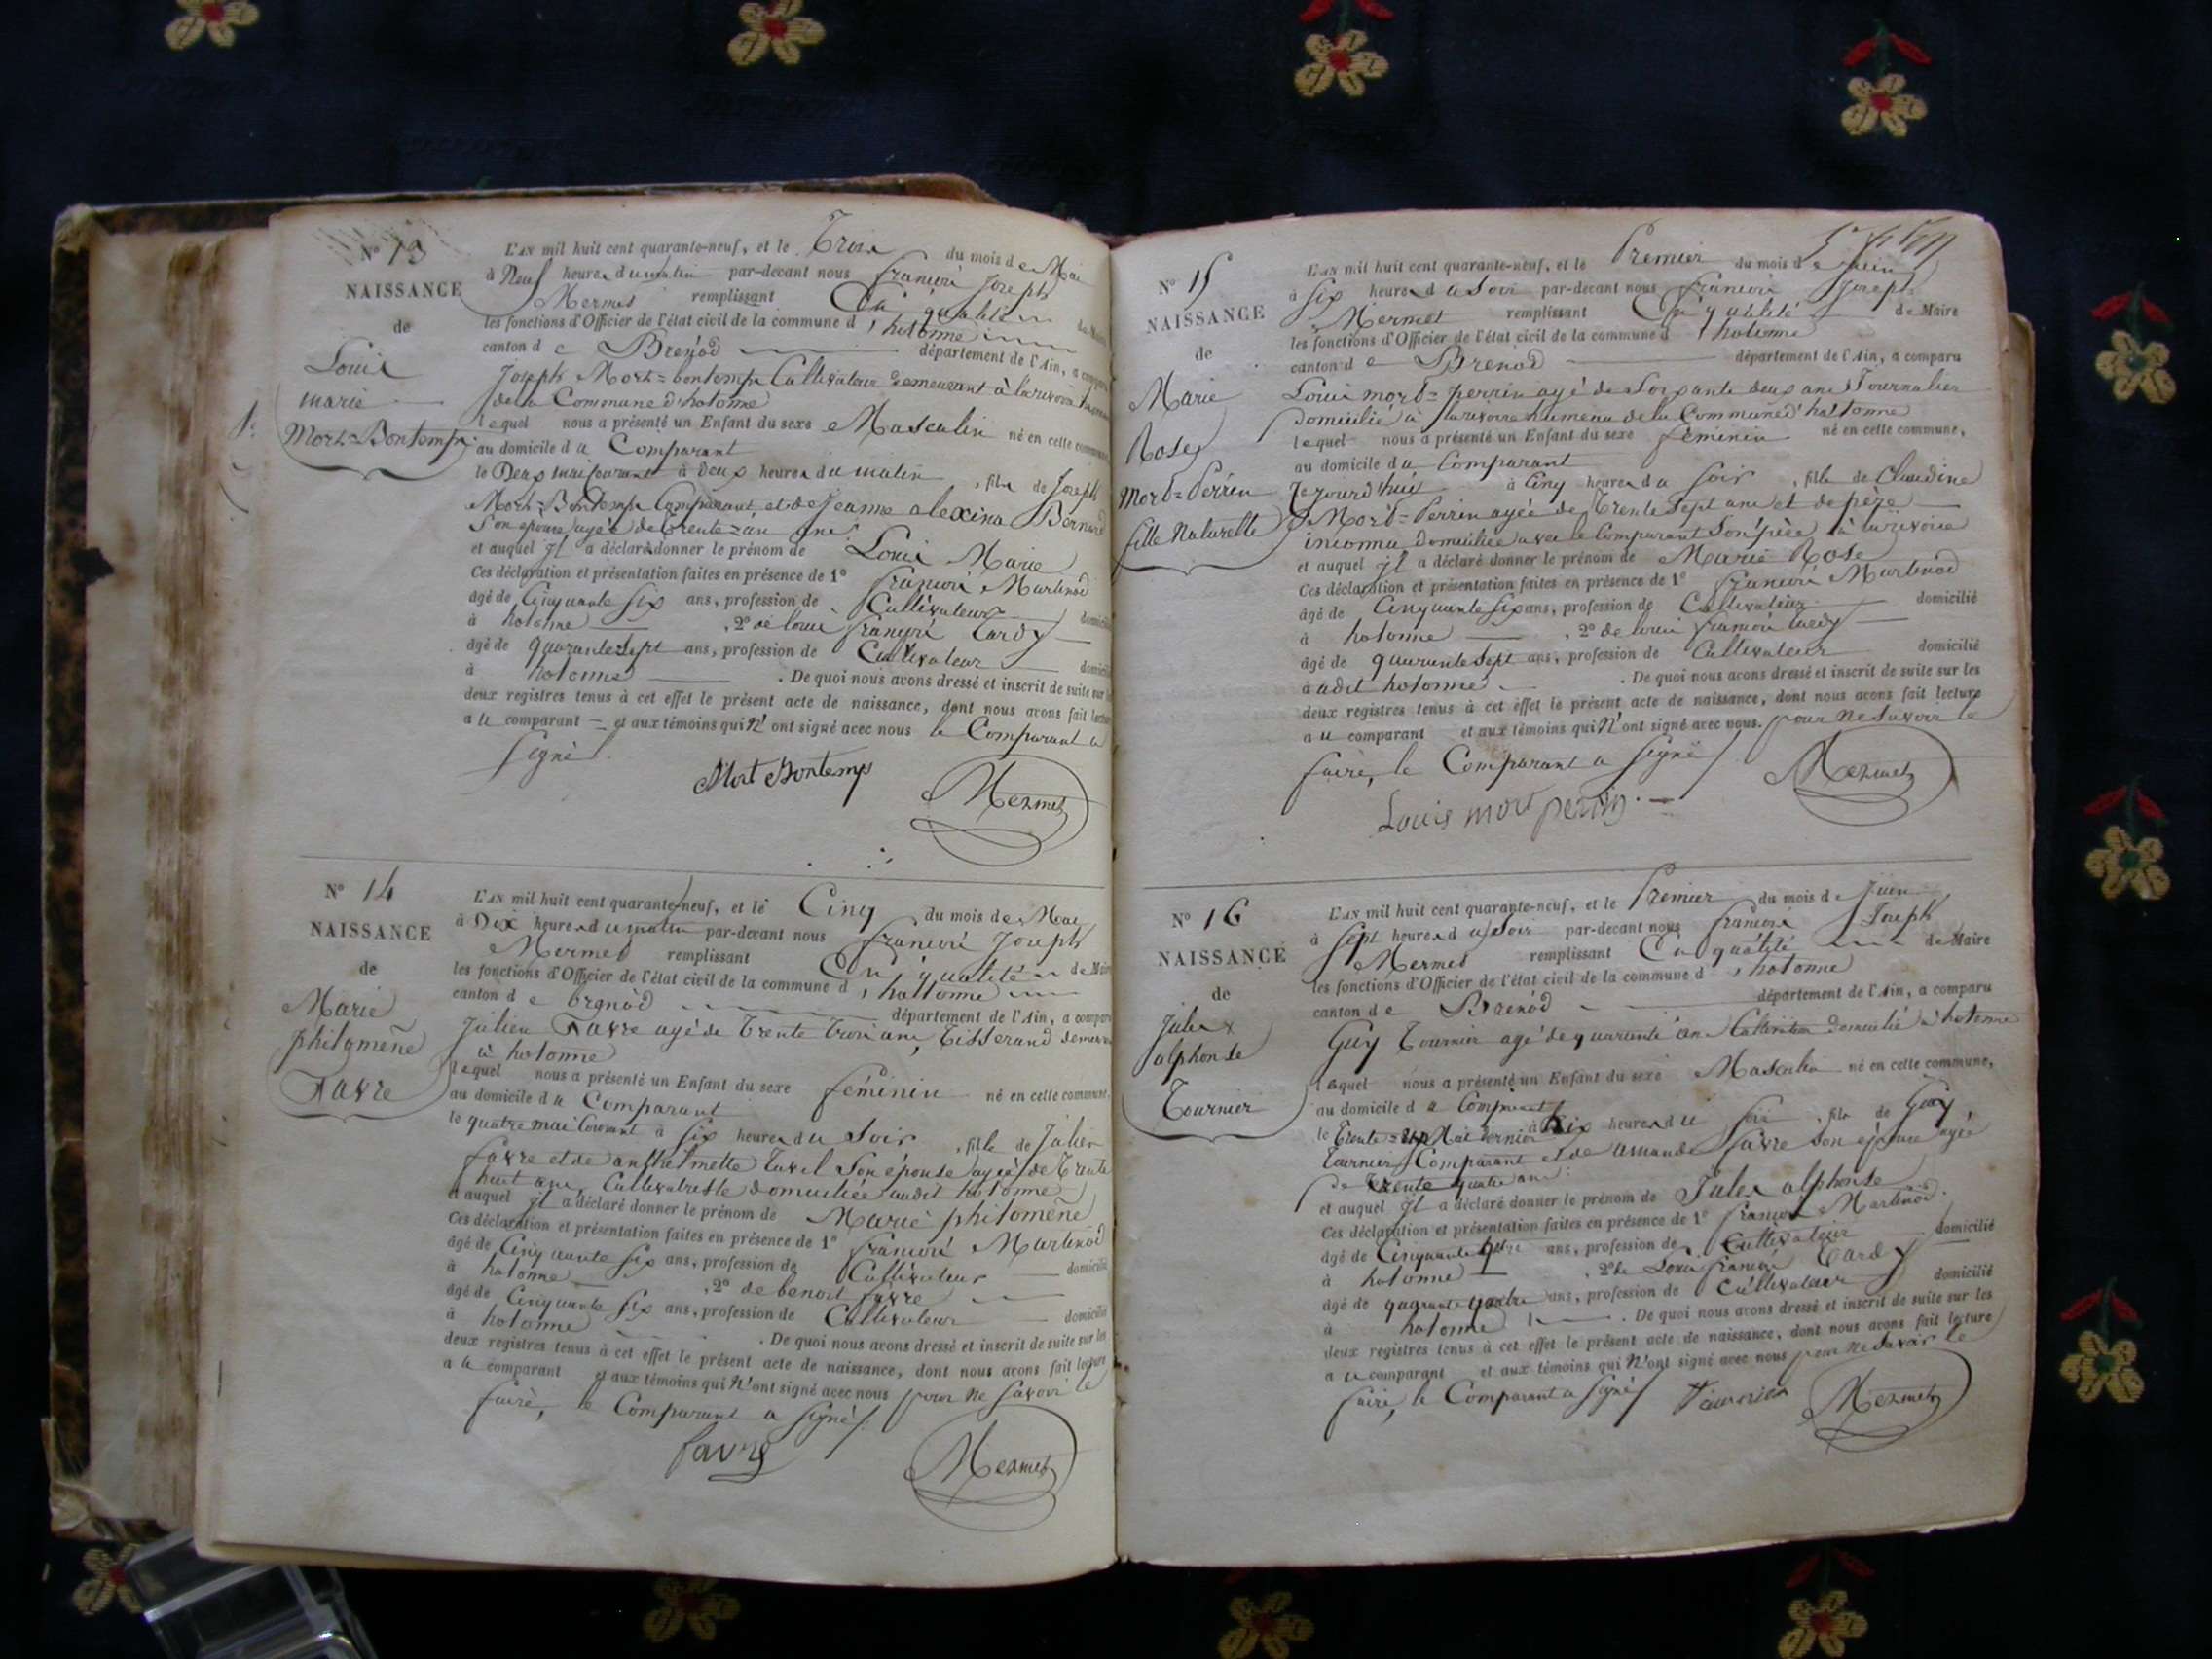 N° 13
NAISSANCE
de
Louis
marie
Mort=Bontemps
L'AN mil huit cent quarante-neuf, et le Trois du mois de Mai
à Neuf heures du matin par-devant nous françois Joseph
Mermet remplissant En qualité de Maire
les fonctions d'Officier de l'état civil de la commune d'hotonne
canton de Brenod département de l'Ain, a comparu
Joseph Mort=bontemps Cultivateur demeurant à larivoire hameau
de la Commune d'hotonne
lequel nous a présenté un Enfant du sexe Masculin né en cette commune
au domicile du Comparant
le Deux mai courant à deux heures du matin, fils de Joseph
Mort=Bontemps Comparant et de Jeanne alexina Bernard
Son épouse agée de trente=un ans
et auquel il a déclaré donner le prénom de Louis Marie
Ces déclaration et présentation faites en présence de 1° françois Martinod
âgé de Cinquante Six ans, profession de Cultivateur domicilié
à hotonne, 2° de louis françois Tardy
âgé de quarante Sept ans, profession de Cultivateur domicilié
à hotonne. De quoi nous avons dressé et inscrit de suite sur les
deux registres tenus à cet effet le présent acte de naissance, dont nous avons fait lecture
au comparant et aux témoins qui N'ont signé avec nous le Comparant a
Signé
Mort Bontemps
Mermet
N° 14
NAISSANCE
de
Marie
philomène
Favre
L'AN mil huit cent quarante-neuf, et le Cinq du mois de Mai
à Dix heures du matin par-devant nous françois Joseph
Mermet remplissant En qualité de Maire
les fonctions d'Officier de l'état civil de la commune d'hottonne
canton de brenod département de l'Ain, a comparu
Julien Favre agé de trente trois ans, Tisserand demeurant
à hotonne
lequel nous a présenté un Enfant du sexe féminin né en cette commune,
au domicile du Comparant
le quatre mai Courant à Six heures du Soir, fille de Julien
favre et de anthelmette Son épouse agée de trente
huit ans, Cultivatrice domiciliée audit hotonne
et auquel il a déclaré donner le prénom de Marie philomène
Ces déclaration et présentation faites en présence de 1° françois Martinod
âgé de Cinquante Six ans, profession de Cultivateur domicilié
à hotonne, 2° de benoit favre
âgé de Cinquante Six ans, profession de Cultivateur domicilié
à hotonne. De quoi nous avons dressé et inscrit de suite sur les
deux registres tenus à cet effet le présent acte de naissance, dont nous avons fait lecture
au comparant et aux témoins qui N'ont signé avec nous pour ne Savoir le
faire, le Comparant a Signé
favre
Mermet
N° 15
NAISSANCE
de
Marie
Rose
Mort=Perrin
fille Naturelle
L'AN mil huit cent quarante-neuf, et le Premier du mois de Juin
à Six heures du Soir par-devant nous françois Joseph
Mermet remplissant En qualité de Maire
les fonctions d'Officier de l'état civil de la commune d'hotonne
canton de Brenod département de l'Ain, a comparu
Louis mort=perrin agé de Soixante deux ans Journalier
Domicilié à larivoire hameau de la Commune d'hottonne
lequel nous a présenté un Enfant du sexe féminin né en cette commune,
au domicile du Comparant
Cejourd'hui à Cinq heures du Soir, fille de Claudine
Mort=Perrin agée de Trente Sept ans et de père
inconnu domiciliée avec le Comparant Son père à larivoire
et auquel il a déclaré donner le prénom de Marie Rose
Ces déclaration et présentation faites en présence de 1° françois Martinod
âgé de Cinquante Six ans, profession de Cultivateur domicilié
à hotonne, 2° de louis françois tardy
âgé de quarante Sept ans, profession de Cultivateur domicilié
à udit hotonne. De quoi nous avons dressé et inscrit de suite sur les
deux registres tenus à cet effet le présent acte de naissance, dont nous avons fait lecture
au comparant et aux témoins qui N'ont signé avec nous. pour ne Savoir le
faire, le Comparant a Signé
Louis mort perrin
Mermet
N° 16
NAISSANCE
de
Jules
alphonse
Tournier
L'AN mil huit cent quarante-neuf, et le Premier du mois de Juin
à Sept heures du Soir par-devant nous françois Joseph
Mermet remplissant En qualité de Maire
les fonctions d'Officier de l'état civil de la commune d'hotonne
canton de Brenod département de l'Ain, a comparu
Guy Tournier agé de quarante ans Cultivateur Domicilié à hotonne
lequel nous a présenté un Enfant du sexe Masculin né en cette commune,
au domicile du Comparant
le Trente=un Mai dernier à heures du Soir, fils de Guy
Tournier Comparant et de amande favre Son épouse agée
de trente quatre ans
et auquel il a déclaré donner le prénom de Jules alphonse
Ces déclaration et présentation faites en présence de 1° françois Martinod.
âgé de Cinquante ans, profession de Cultivateur domicilié
à hotonne, 2° de Louis françois Tardy
âgé de quarante quatre ans, profession de Cultivateur domicilié
à hotonne. De quoi nous avons dressé et inscrit de suite sur les
deux registres tenus à cet effet le présent acte de naissance, dont nous avons fait lecture
au comparant et aux témoins qui N'ont signé avec nous pour ne Savoir le
faire, le Comparant a Signé
Tournier
Mermet